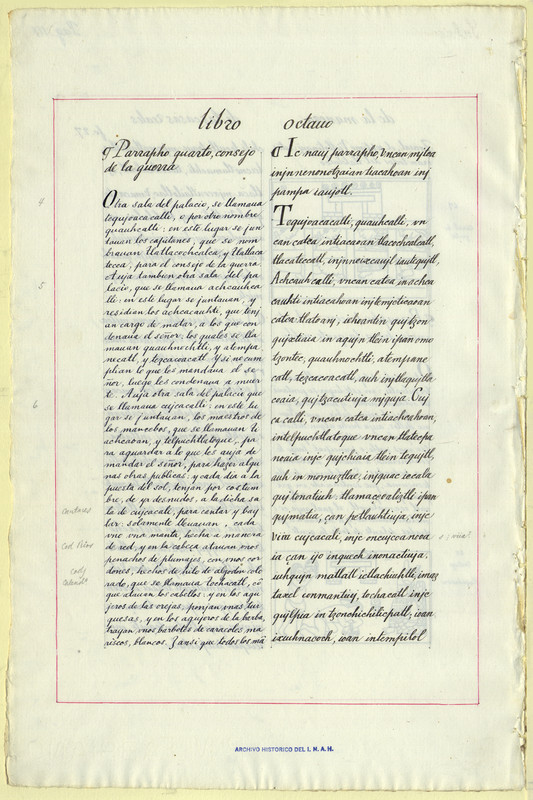 libro octauo
¶ Parrapho quarto, consejo
de la guerra
Otra sala del palacio, se llamaua
tequjoacacalli, o por otro nombre
quauhcalli: en este lugar se jun
tauan los capitanes, que se nom
brauan tlatlacochcalca, y tlatlaca
teca, para el consejo de la guerra.
Auja tambien otra sala del pa
lacio, que se llamaua achcauhca
lli: en este lugar se juntauan, y
residian los achcacauhti, que tenj
an cargo de matar, a los que con
denaua el señor, los quales se lla
mauan quauhnochtli, y atempa
necatl, y tezcacoacatl. Y si no cum
plian lo que les mandaua el se
ñor, luego les condenaua a muer
te. Auja otra sala del palacio que
se llamaua cujcacalli: en este lu
gar se juntauan, los maestros de
los mancebos, que se llamauan ti
achcaoan, y telpuchtlatoque, pa
ra aguardar a lo que les auja de
mandar el señor, para hazer algu
nas obras publicas: y cada dia a la
puesta del sol, tenjan por costum
bre, de yr desnudos, a la dicha sa
la de cujcacali, para cantar y bay
lar: solamente lleuauan, cada
vno vna manta, hecha a manera
de red, y en la cabeça atauan vnos
penachos de plumajes, con vnos cor
dones, hechos de hilo de algodon colo
rado, que se llamaua tochacatl, cõ
que atauan los cabellos: y en los agu
jeros de las orejas, ponjan vnas tur
quesas, y en los agujeros de la barba,
trayan, vnos barbotes de caracoles ma
riscos, blancos. J ansi que todos los mã
¶ Ic nauj parrapho, vncan mjtoa
injnnenonotzaian tiacahoan inj
pampa iaujotl.
Tequjoacacalli, quauhcalli, vn
can catca intiacaoan tlacochcalcatl,
tlacateccatl, injnnoixcaujl iautequjtl,
Achcauhcalli, vncan catca in achca
cauhti intiacahoan injtemjcticaoan
catca tlatoanj, iehoantin qujtzon
qujxtiaia in aqujn tlein ipan omo
tzontec, quauhnochtli, atempane
catl, tezcacoacatl, auh injtlaqujtla
coaia, qujtzacutiuja mjquja. Cuj
ca calli, vncan catca intiachcahoan,
intelpuchtlatoque vncan tlatecpa
noaia injc qujchiaia tlein tequjtl,
auh in momuztlae, injquac iecala
quj tonatiuh tlamaceoaliztli ipan
qujmatia, çan petlauhtiuja, injc
viia cujcacali, injc oncujcoanoia
ia çan ijo inquech inonactiuja,
iuhqujn matlatl ictlachiuhtli, imaz
taxel conmantiuj, tochacatl injc
qujlpia in tzonchichilicpatl, ioan
ixiuhnacoch, ioan intempilol
4
5
6
ARCHIVO HISTORICO DEL I. N. A. H.